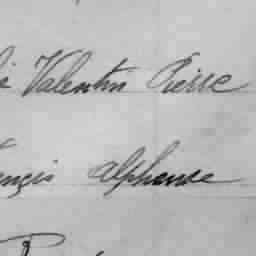 Valentin Pierre
ançis Alphonse